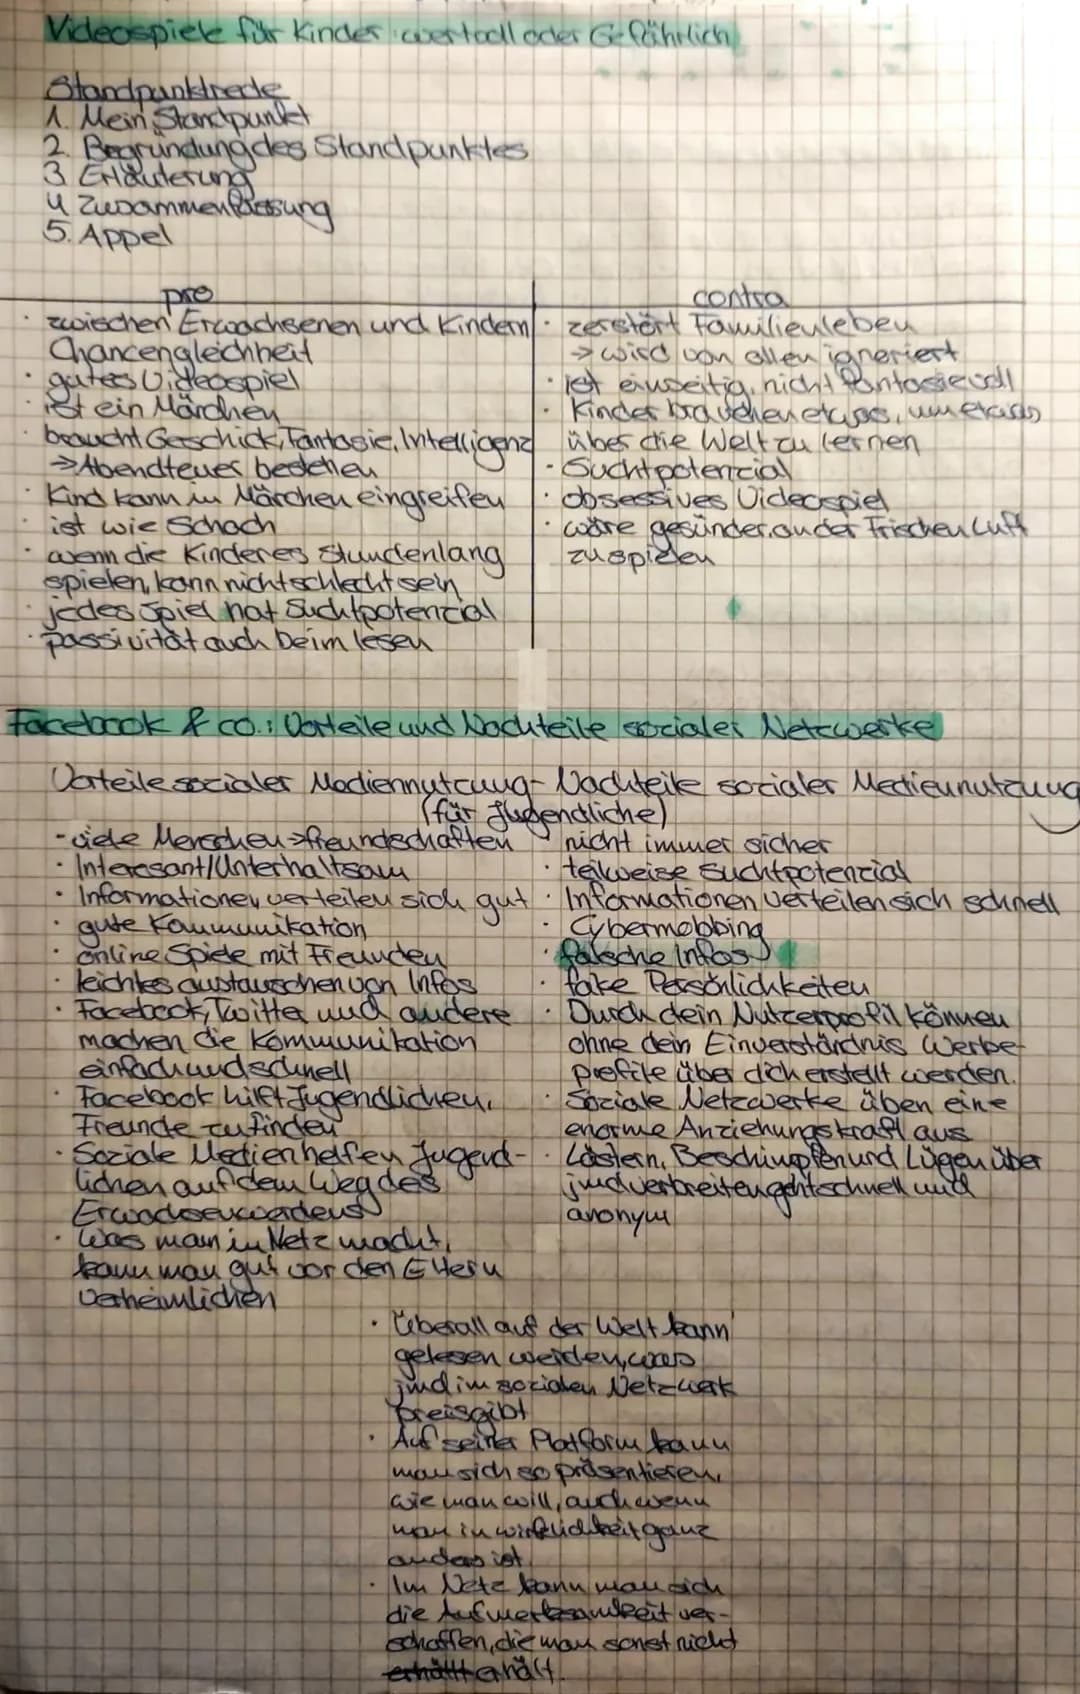 Videospiele für Kinder wertvoll oder Gefährlich
Standpunktrede
1. Mein Standpunkt
2. Begründung des Standpunktes
3 Erläuterung
4 Zusammenfassung
5. Appel
pro
· zwischen Erwachsenen und Kindern
Chancengleichheit
· gutes Videospiel
· ist ein Märchen
· braucht Geschick, Fantasie, Intelligenz
→ Abendteuer bestehen
· Kind kann in Märchen eingreifen
· ist wie Schach
· wenn die Kinder es stundenlang
spielen, kann nicht schlecht sein
· jedes Spiel hat Suchtpotenzial
· passivität auch beim lesen
contra
· zerstört Familienleben
→ wird von allen ignoriert
· ist einseitig, nicht fantasievoll
· Kinder brauchen etwas, um etwas
über die Welt zu lernen
· Suchtpotenzial
· obsessives Videospiel
· wäre gesünder an der Frischen Luft
zu spielen
Facebook & co.: Vorteile und Nachteile sozialer Netzwerke
Vorteile sozialer Mediennutzung - Nachteile sozialer Mediennutzung
(für Jugendliche)
- viele Menschen → freundschaften
· Interessant/Unterhaltsam
· Informationen verteilen sich gut
· gute Kommunikation
· online Spiele mit Freunden
· leichtes austauschen von Infos
· Facebook, Twitter und andere
machen die Kommunikation
einfach und schnell
· Facebook hilft Jugendlichen,
Freunde zu finden
· Soziale Medien helfen Jugend-
lichen auf dem Weg des
Erwachsenwerdens
· Was man im Netz macht,
kann man gut vor den Eltern
verheimlichen
· nicht immer sicher
· teilweise Suchtpotenzial
· Informationen verteilen sich schnell
· Cybermobbing
· falsche Infos
· fake Persönlichkeiten
· Durch dein Nutzerprofil können
ohne dein Einverständnis Werbe-
profile über dich erstellt werden.
· Soziale Netzwerke üben eine
enorme Anziehungskraft aus
· Lästern, Beschimpfen und Lügen über
jmd verbreiten geht schnell und
anonym
· Überall auf der Welt kann
gelesen werden, was
jmd im sozialen Netzwerk
preisgibt
· Auf seiner Platform kann
man sich so präsentieren,
wie man will, auch wenn
man in wirklichkeit ganz
anders ist.
· Im Netz kann man sich
die Aufmerksamkeit ver-
schaffen, die man sonst nicht
erhällt erhält.